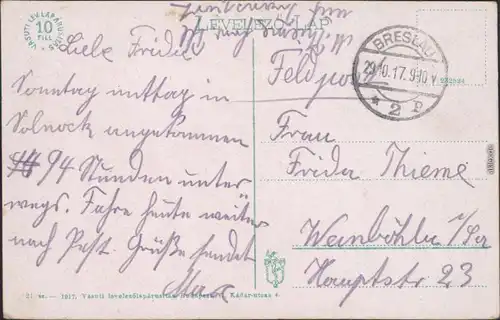 LEVELEZŐ-LAP
VASUTI LEVELEZŐLAPÁRUSITÁS
10
FILL
Liebe Frieda
Sonntag mittag in
Solnock angekommen
94 Stunden unter
wegs. Fahre heute weiter
nach Pest. Grüße sendet
Max
Feldpost
BRESLAU
29.10.17.9-10 V.
* 2 P
Frau
Frida Thieme
Weinböhla i/Sa
Hauptstr 23
21 sz. — 1917. Vasuti levelezőlapárusitás Budapest, Kádár-utcza 4.